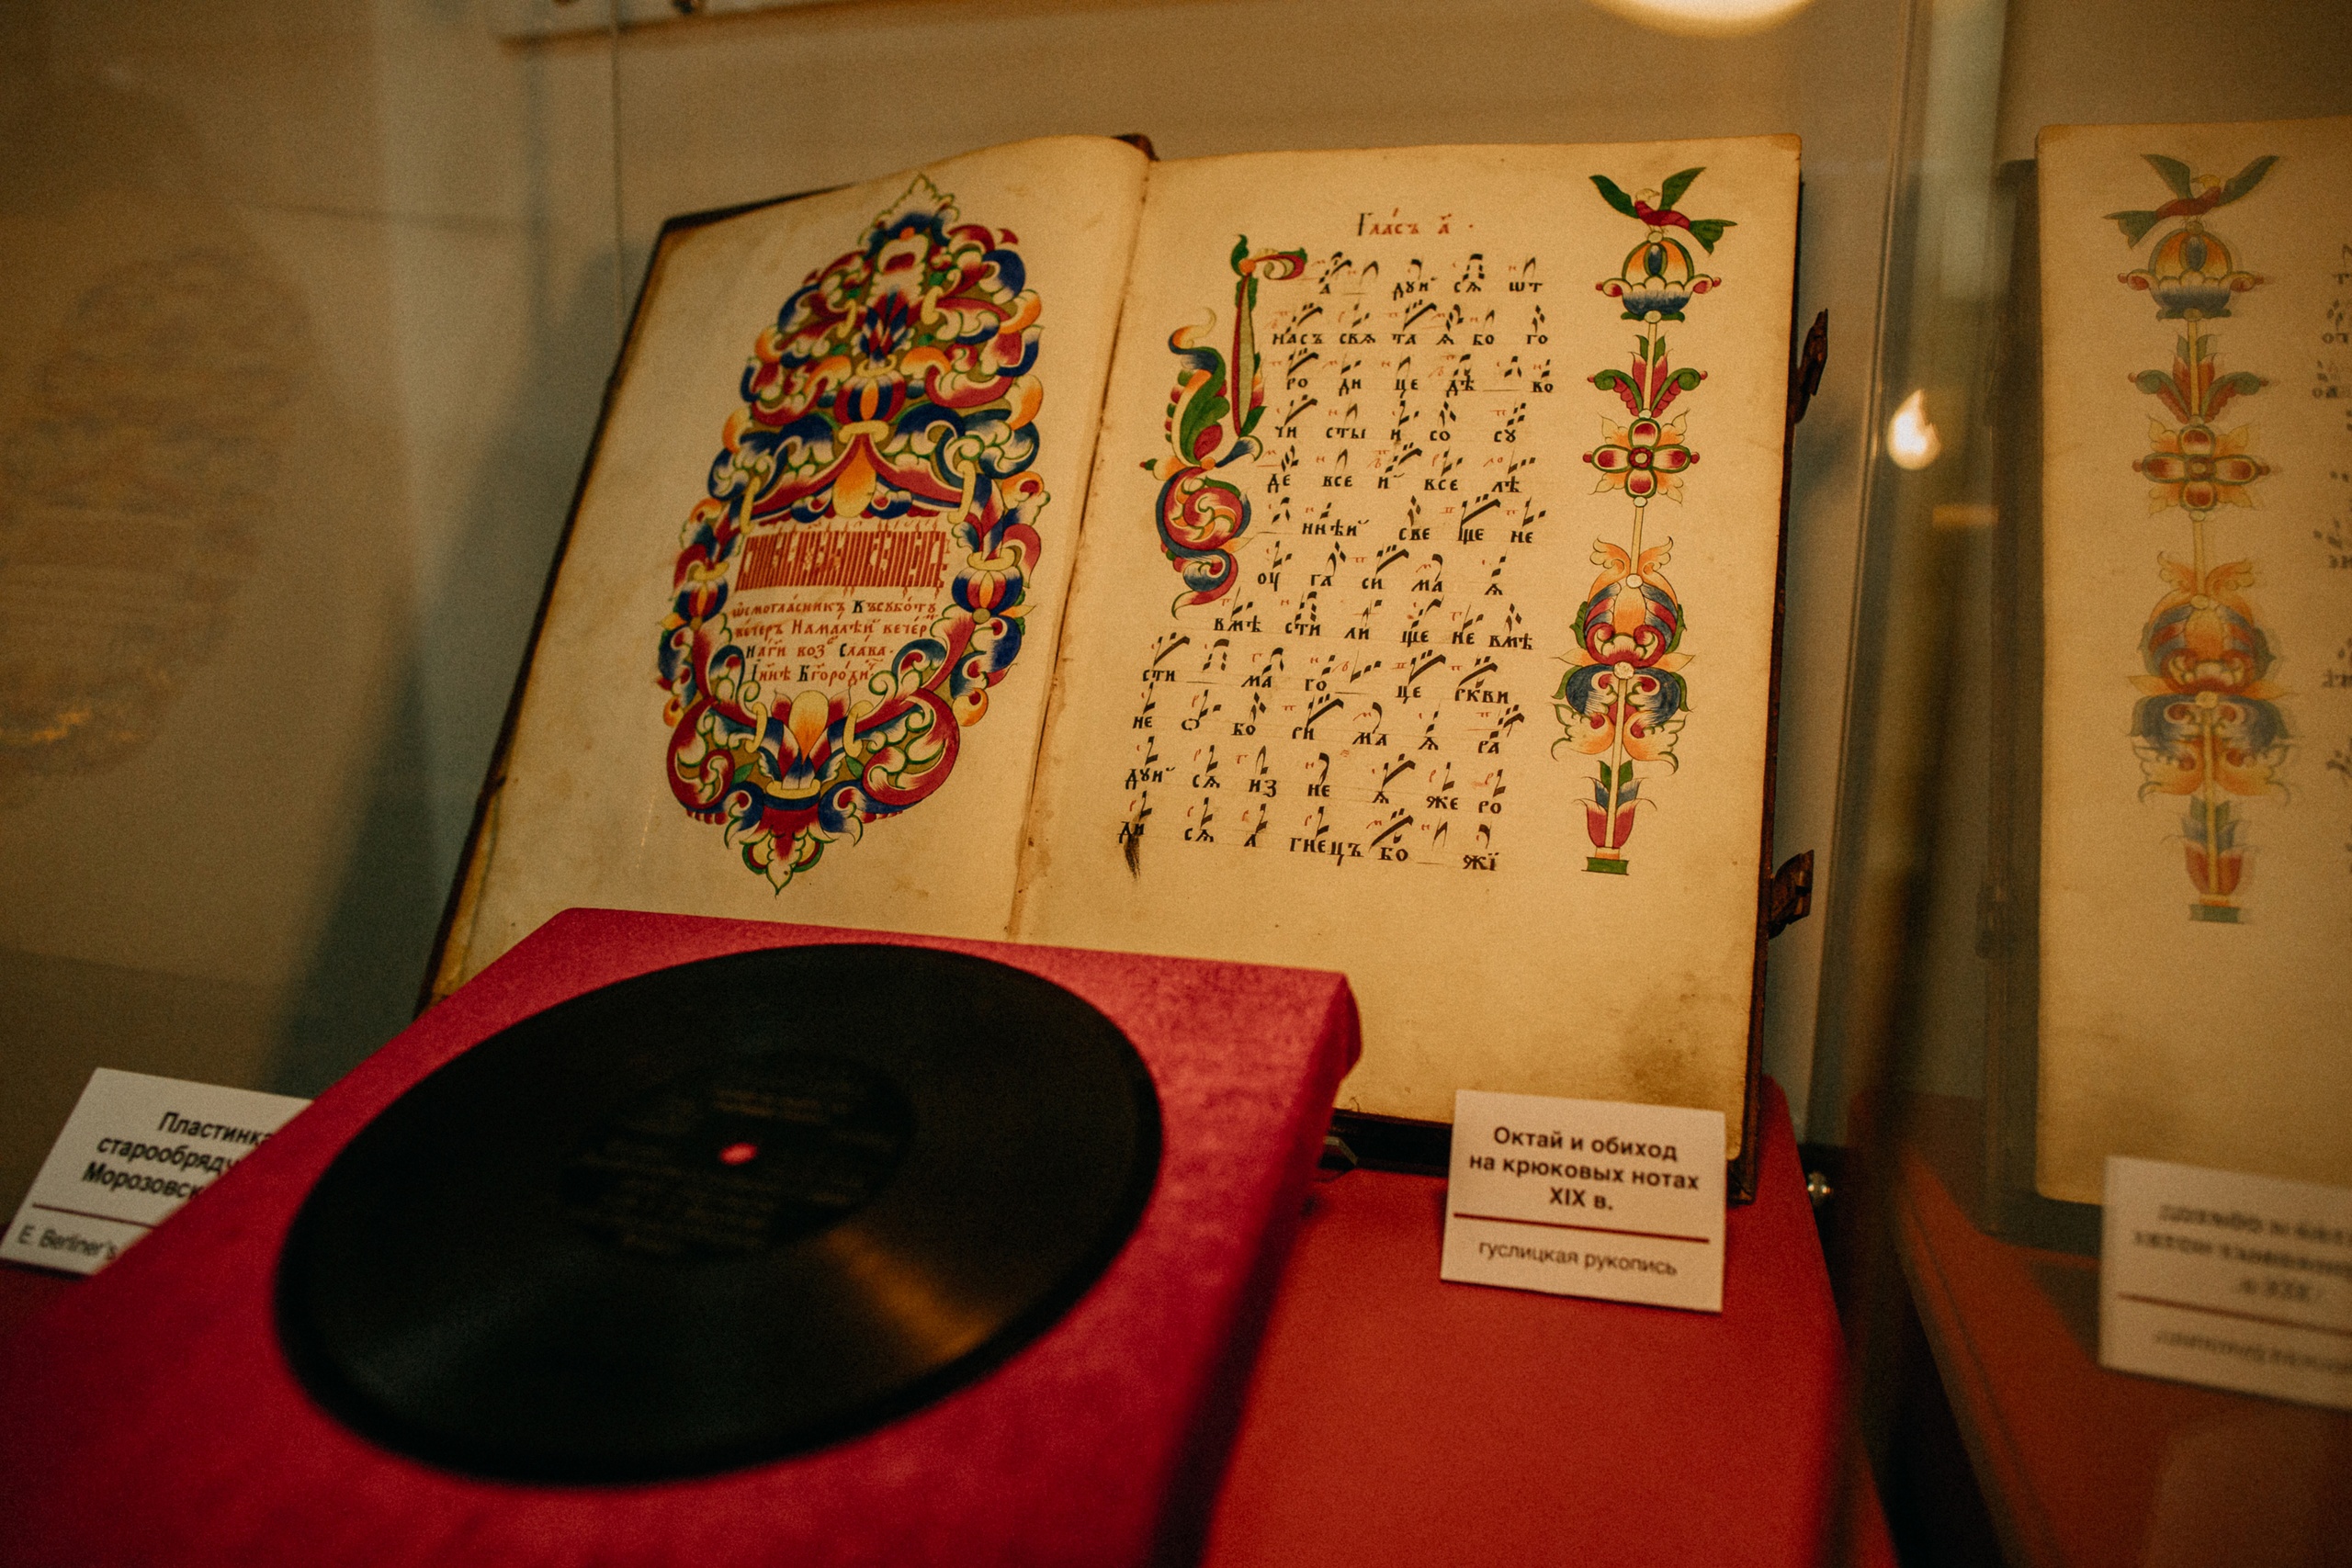 ѡсмогласникъ Въсꙋбо́тꙋ
вечеръ Намалѣй вече́р
Сла́ва
Гла́съ а҃
а дꙋй сѧ ѿт
насъ свѧ та ѧ бо го
ро ди це дѣ во
чи сты и со сꙋ
де все и҆ все лѣ
ннѣй све ще не
оу га си ма ѧ
вмѣ сти ли ще не вмѣ
сти ма го це ркви
не ѡ бо ри ма ѧ ра
дꙋй сѧ из не ѧ же ро
ди сѧ а гнецъ бо жї
Пластинка
старообряд
Морозовск
E. Berliner's
Октай и обиход
на крюковых нотах
XIX в.
гуслицкая рукопись